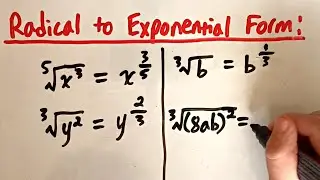 Radical to Exponential Form:
⁵√x³ = x^(3/5)
³√y² = y^(2/3)
³√b = b^(1/3)
³√(8ab)² =